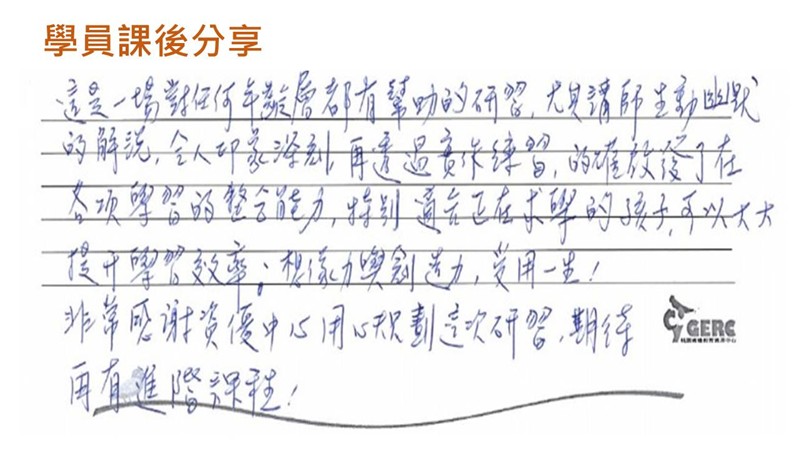 學員課後分享
這是一場對任何年齡層都有幫助的研習，尤其講師生動幽默
的解說，令人印象深刻，再透過實作練習，的確啟發了在
各項學習的整合能力，特別適合正在求學的孩子，可以大大
提升學習效率，想像力與創造力，受用一生！
非常感謝資優中心用心規劃這次研習，期待
GERC
再有進階課程！